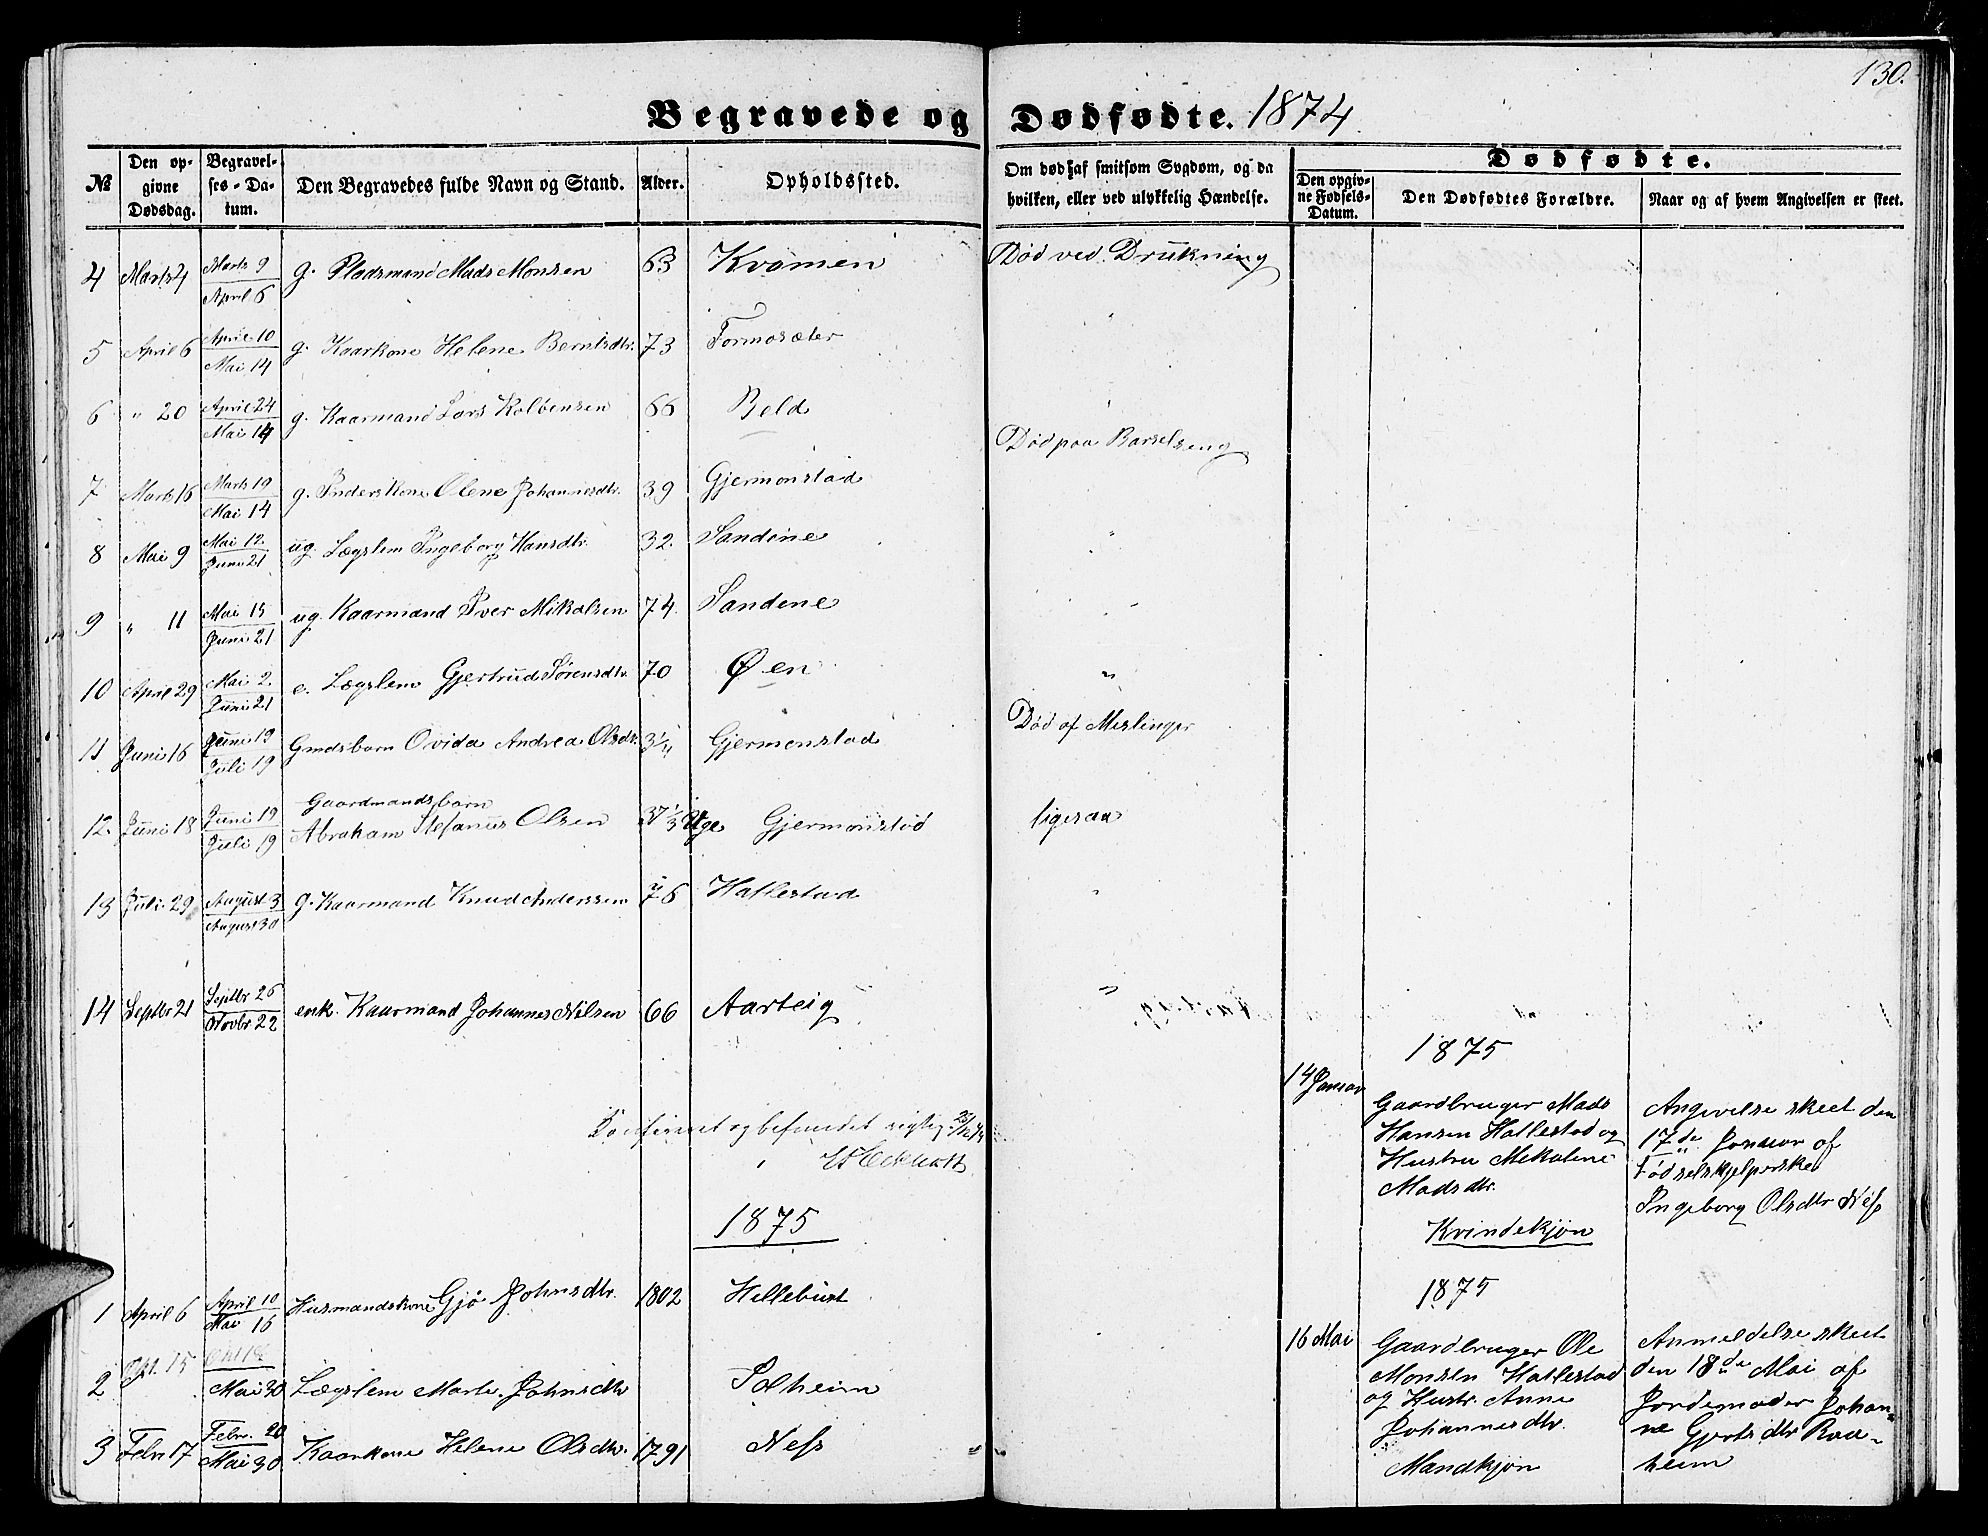 130.
Begravede og Dødfødte. 1874
№ Den opgivne Dødsdag. Begravelses-Datum. Den Begravedes fulde Navn og Stand. Alder. Opholdssted. Om død af smitsom Sygdom, og da hvilken, eller ved ulykkelig Hændelse. Dødfødte. Den opgivne Fødsels-Datum. Den Dødfødtes Forældre. Naar og af hvem Angivelsen er skeet.
4 Marts 4 Marts 9 April 6 g. Pladsmand Mads Monsen 63 Kvamen Død ved Drukning
5 April 6 April 10 Mai 14 g. Kaarkone Helene Berntsdtr. 73 Formosæter "
6 " 20 April 24 Mai 14 g. Kaarmand Lars Kolbensen 66 Beld "
7 Marts 16 Marts 19 Mai 14 g. Inderskone Olene Johannesdtr. 39 Gjermonstad Død paa Barselseng
8 Mai 9 Mai 12. Juni 21 ug. Lægslem Ingeborg Hansdtr. 32. Sandene "
9 " 11 Mai 15 Juni 21 ug. Kaarmand Iver Mikalsen 74. Sandene "
10 April 29 Mai 2. Juni 21 e. Lægslem Gjertrud Sørensdtr. 70 Øen "
11 Juni 16 Juni 19 Juli 19 Gmdsbarn Ovida Andrea Olsdr. 3¼ Gjermonstad Død af Meslinger
12. Juni 18 Juni 19 Juli 19 Gaardmandsbarn
Abraham Stefanus Olsen 37⅓ Uge Gjermonstad ligesaa
13 Juli 29 August 3 August 30 g. Kaarmand Knud Anderssen 76 Hatlestad "
14 Septbr 21 Septbr 26 Novbr 22 enk. Kaarmand Johannes Nilsen 66 Aarteig "
Konfereret og befundet rigtig
1875
1 April 6 April 10 Mai 16 Husmandskone Gjø Johnsdtr. 1802 Hellebust
2 Okt. 15 Mai 30 Lægslem Marte Johnsdtr Solheim
3 Febr 17 Febr. 20 Mai 30 Kaarkone Helene Olsdtr. 1791 Ness "
1875
14 Januar Gaardbruger Mads
Hansen Hatlestad og
Hustru Mekaline
Madsdtr.
Kvindekjøn
Angivelse skeet den
17de Januar af
Fødselshjelperske
Ingeborg Olsdtr Ness
1875
16 Mai Gaardbruger Ole
Monsen Hatlestad
og Hustr. Anne
Johannesdtr.
Mandkjøn
Anmeldelse skeet
den 18de Mai af
Jordemoder Johan-
ne Gjertsdtr Raa-
heim